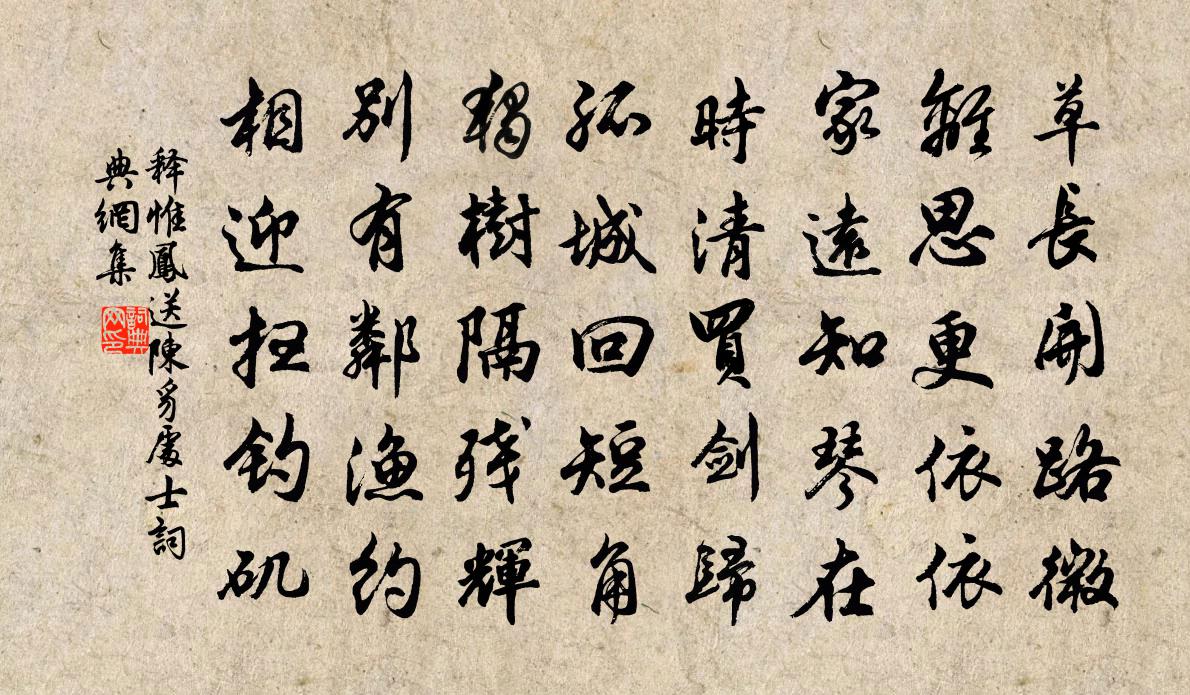 草長開路微
離思更依依
家遠知琴在
時清買劍歸
孤城回短角
獨樹隔残輝
別有鄰漁約
相迎扫釣矶
释惟鳳送陳豸處士詞
典網集
詞典
网印